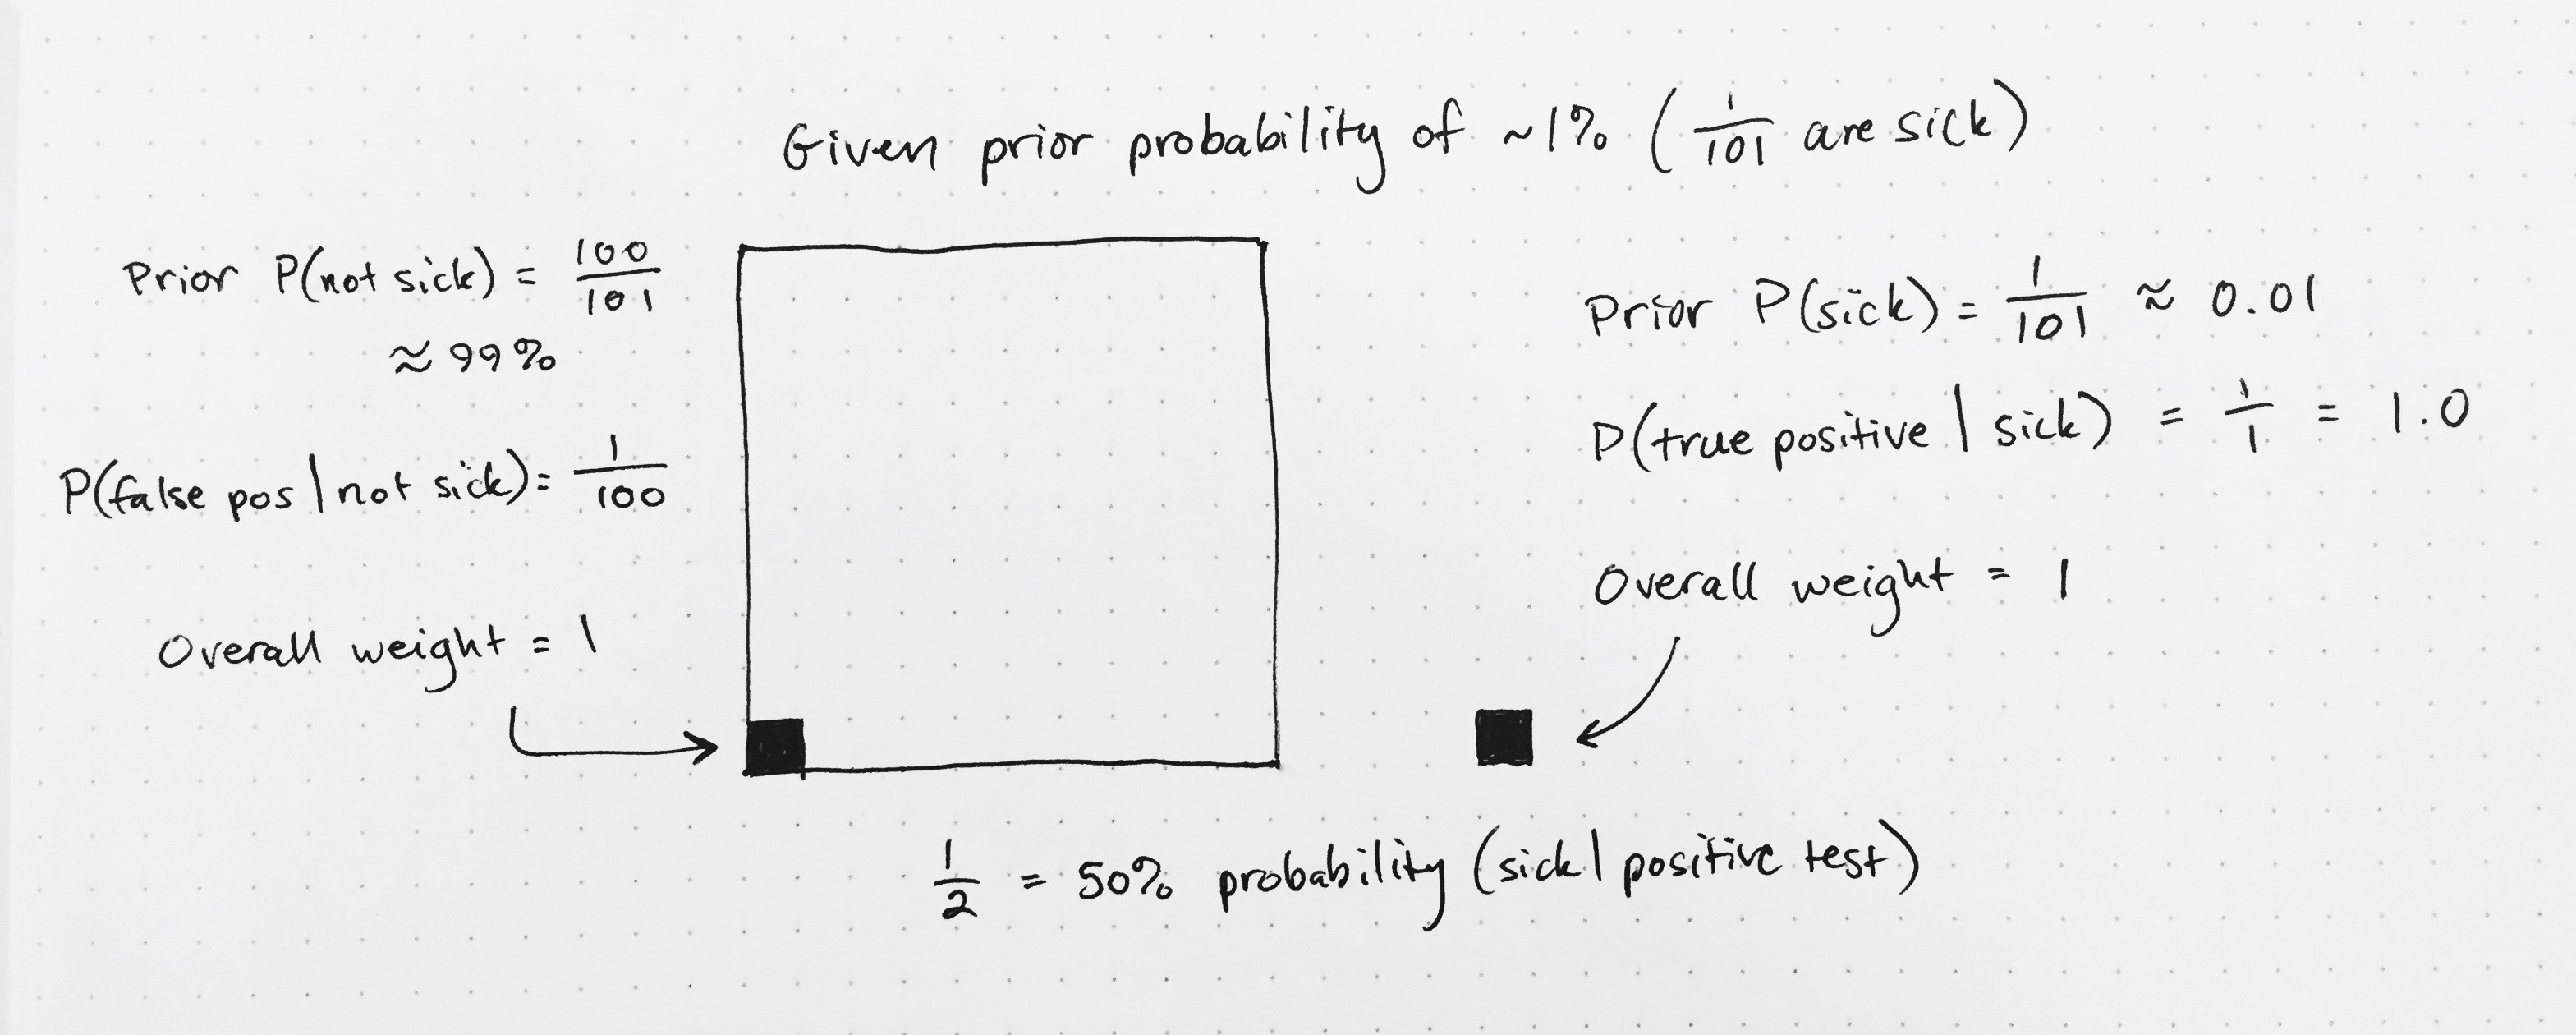 Given prior probability of ~1% (1/101 are sick)
Prior P(not sick) = 100/101
≈ 99%
P(false pos | not sick) = 1/100
Overall weight = 1
Prior P(sick) = 1/101 ≈ 0.01
P(true positive | sick) = 1/1 = 1.0
Overall weight = 1
1/2 = 50% probability (sick | positive test)